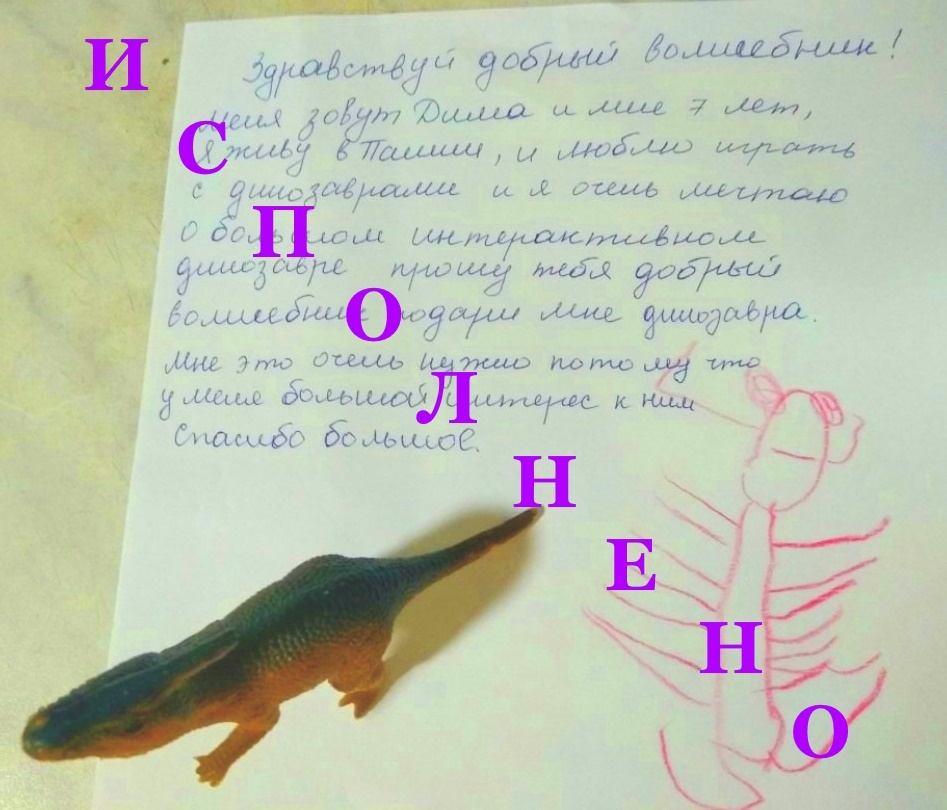 Здравствуй добрый волшебник!
меня зовут Дима и мне 7 лет,
Я живу в Пашии, и люблю играть
с динозаврами и я очень мечтаю
о большом интерактивном
динозавре прошу тебя добрый
волшебник подари мне динозавра.
Мне это очень нужно потому что
у меня большой интерес к ним
Спасибо большое.
ИСПОЛНЕНО